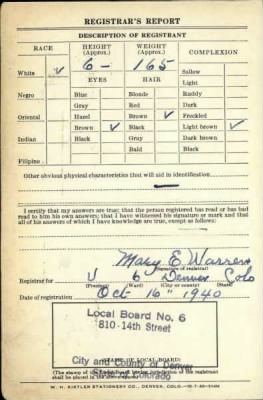 REGISTRAR'S REPORT
DESCRIPTION OF REGISTRANT
RACE HEIGHT (Approx.) WEIGHT (Approx.) COMPLEXION
White ✓ 6- 165 Sallow
EYES HAIR Light
Negro Blue Blonde Ruddy
Gray Red Dark
Oriental Hazel Brown ✓ Freckled
Brown ✓ Black Light brown ✓
Indian Black Gray Dark brown
Bald Black
Filipino
Other obvious physical characteristics that will aid in identification
—
I certify that my answers are true; that the person registered has read or has had
read to him his own answers; that I have witnessed his signature or mark and that
all of his answers of which I have knowledge are true, except as follows:
Mary E. Warren
(Signature of registrar)
Registrar for 6 Denver Colo
(Precinct) (Ward) (City or county) (State)
Date of registration Oct 16" 1940
Local Board No. 6
810-14th Street
City and County of Denver
State of Colorado
(STAMP OF LOCAL BOARD)
(The stamp of the Local Board having jurisdiction of the registrant
shall be placed in the above space)
W. H. KISTLER STATIONERY CO., DENVER, COLO.